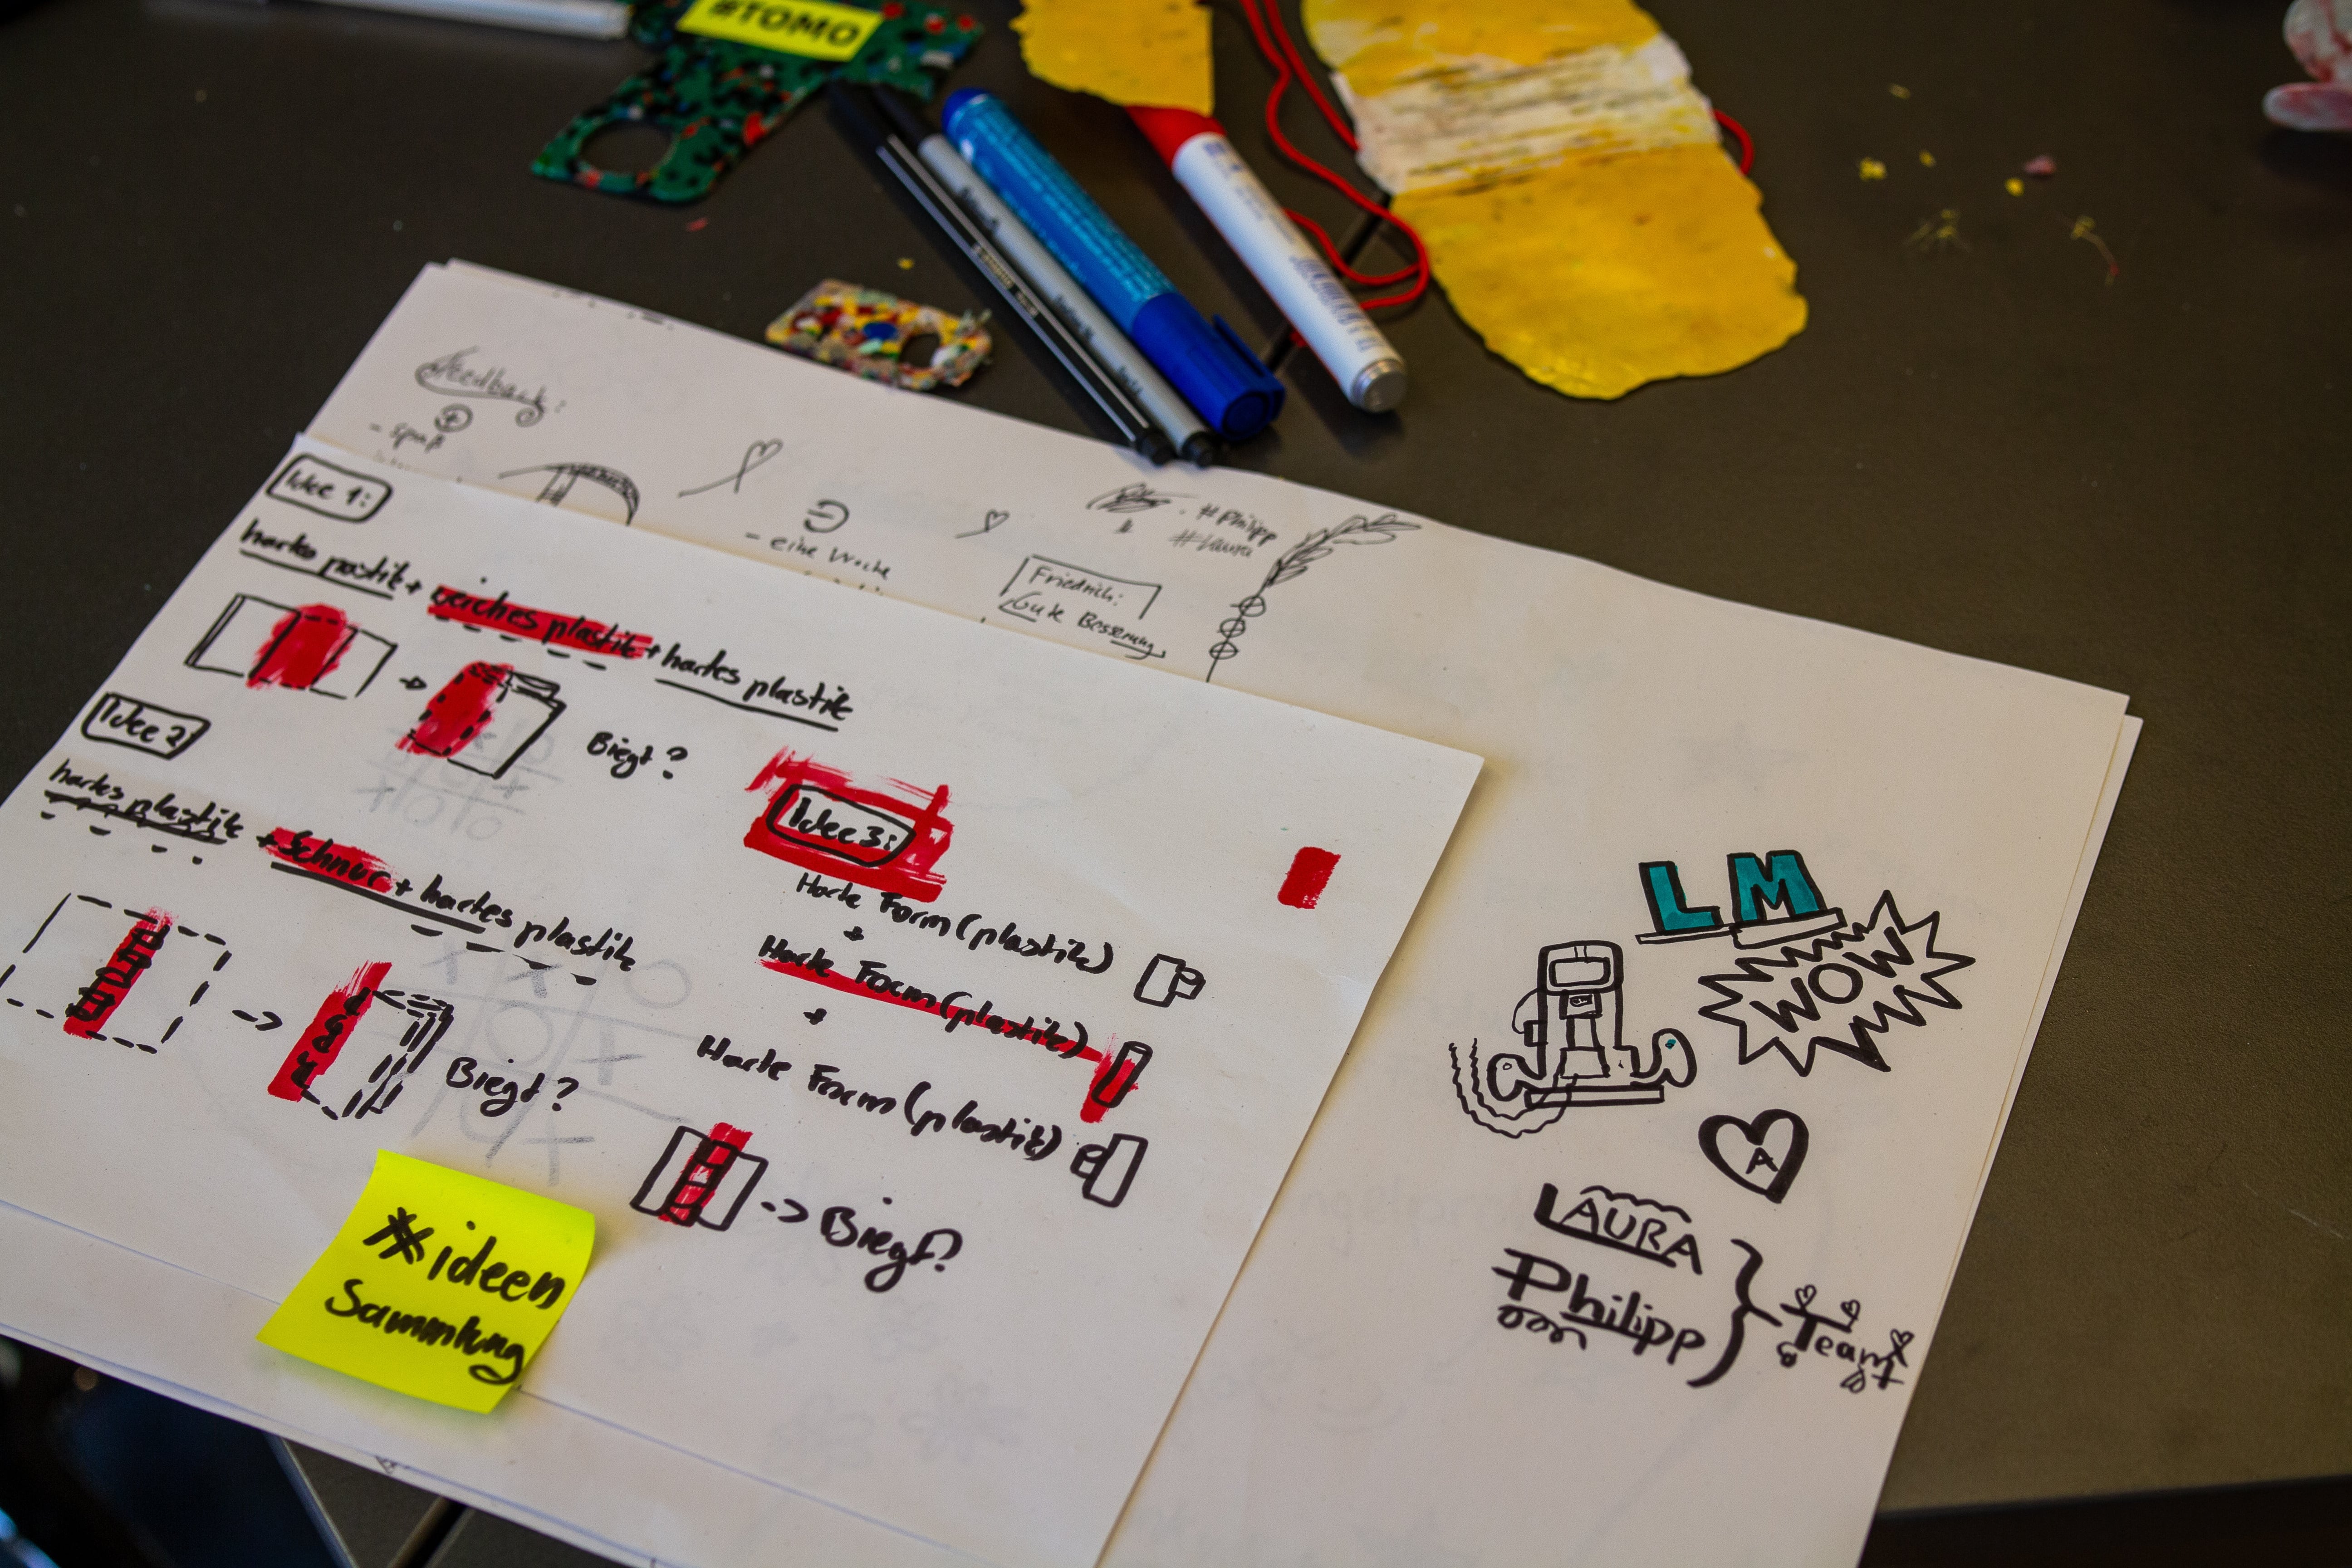 #TOMO
Feedback:
- Spaß
- eine Woche
#Philipp
#Laura
Friedrich:
Gute Besserung
Idee 1:
hartes pastik + weiches plastik + hartes plastik
Biegt?
Idee 2
hartes plastik + Schnur + hartes plastik
Biegt?
Idee 3:
Harte Form (plastik)
+
Harte Form (plastik)
+
Harte Form (plastik)
-> Biegt?
* ideen
Sammlung
LM
WOW
A
LAURA
Philipp
Team